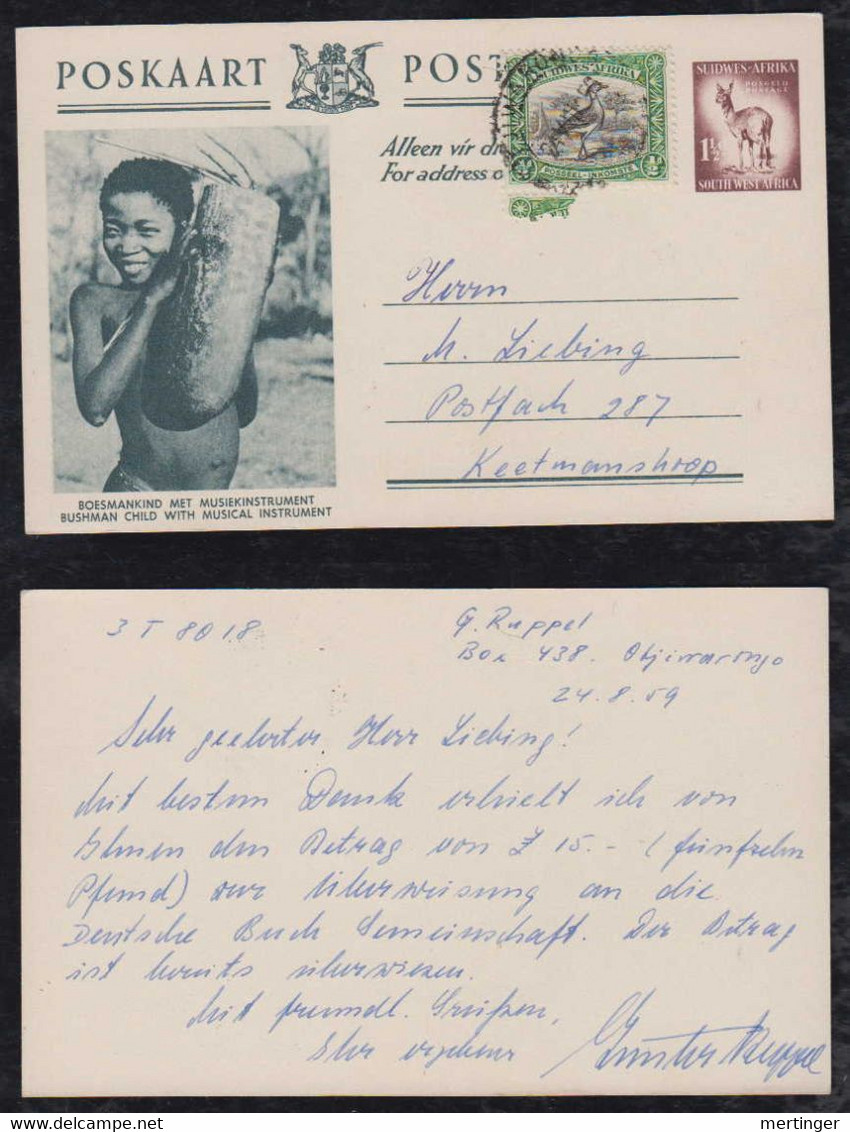 POSKAART POST
SUIDWES-AFRIKA
POSSEEL-INKOMSTE
½
SUIDWES-AFRIKA
POSGELD
POSTAGE
1½
SOUTH WEST AFRICA
Alleen vir
For address o
Herrn
M. Liebing
Postfach 287
Keetmanshoop
BOESMANKIND MET MUSIEKINSTRUMENT
BUSHMAN CHILD WITH MUSICAL INSTRUMENT
3 T 8018
G. Ruppel
Box 438. Otjiwarongo
24.8.59
Sehr geehrter Herr Liebing!
Mit bestem Dank erhielt ich von
Ihnen den Betrag von £ 15.- (fünfzehn
Pfund) zur Überweisung an die
Deutsche Buch Gemeinschaft. Der Betrag
ist bereits überwiesen.
Mit freundl. Grüßen,
Ihr ergebener
Günter Ruppel
mertinger